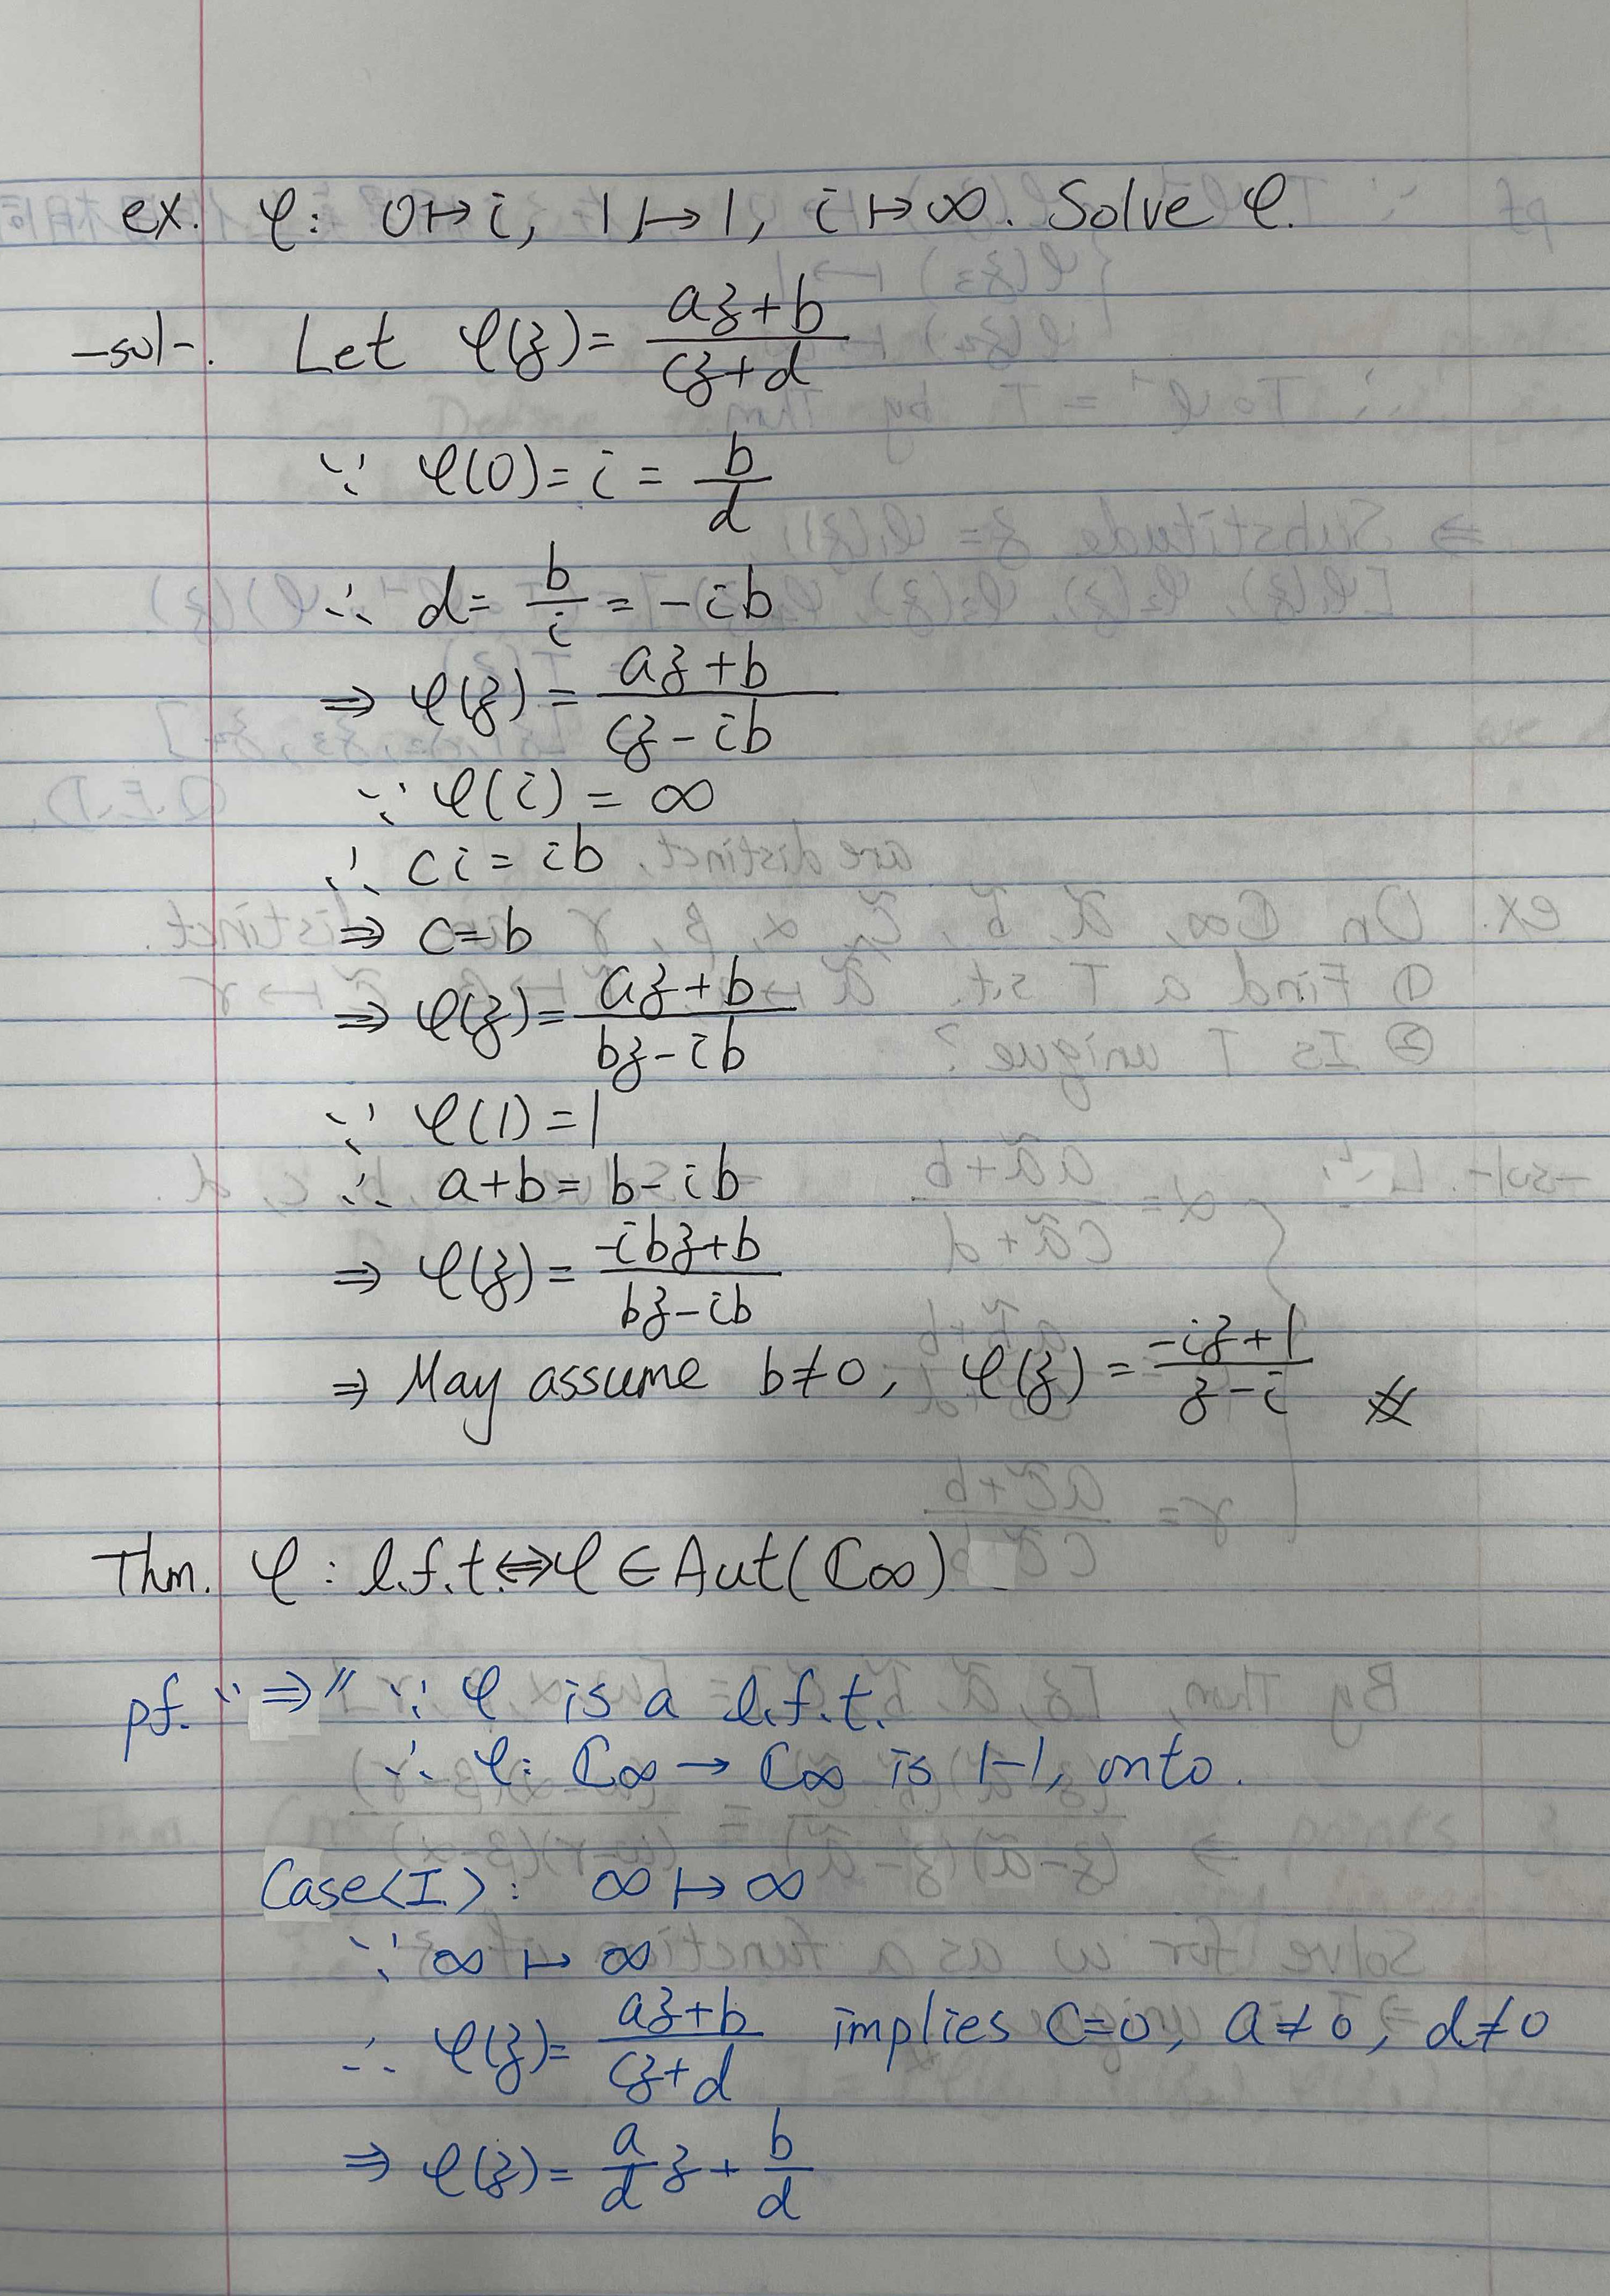 ex. φ: 0↦i, 1↦1, i↦∞. Solve φ.
-sol-. Let φ(z)= (az+b)/(cz+d)
∵ φ(0)=i= b/d
∴ d= b/i = -ib
⇒ φ(z)= (az+b)/(cz-ib)
∵ φ(i)=∞
∴ ci=ib
⇒ c=b
⇒ φ(z)= (az+b)/(bz-ib)
∵ φ(1)=1
∴ a+b=b-ib
⇒ φ(z)= (-ibz+b)/(bz-ib)
⇒ May assume b≠0, φ(z)= (-iz+1)/(z-i)
Thm. φ: l.f.t.⇔φ∈Aut(ℂ∞)
pf. "⇒" ∵ φ is a l.f.t.
∴ φ: ℂ∞→ℂ∞ is 1-1, onto.
Case<I>: ∞↦∞
∵ ∞↦∞
∴ φ(z)= (az+b)/(cz+d) implies c=0, a≠0, d≠0
⇒ φ(z)= a/d z + b/d